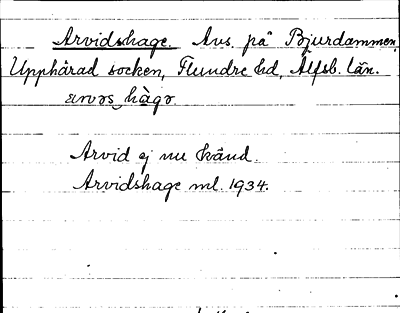 Arvidshage. Avs. på Bjurdammen,
Upphärad socken, Flundre hd, Älfsb. län.
arvəs hàgə
Arvid ej nu känd.
Arvidshage ml. 1934.